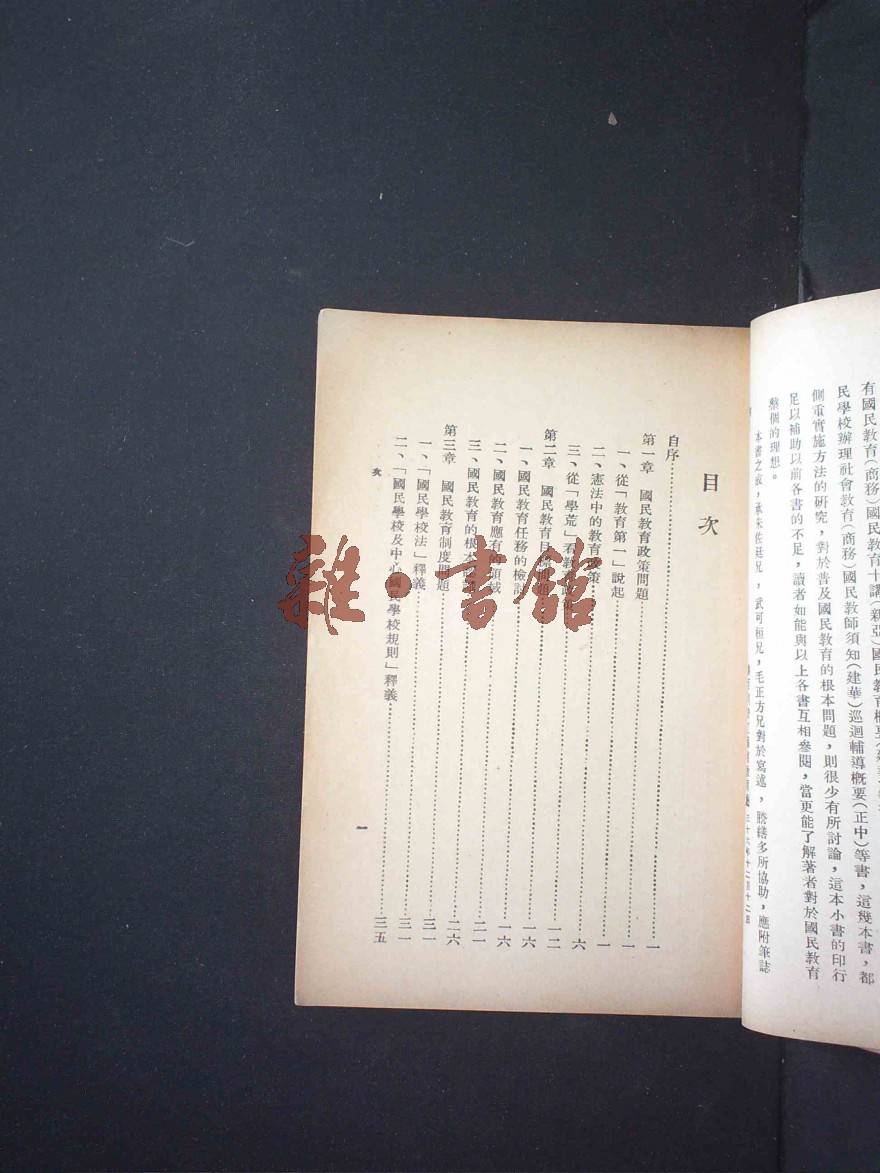 有國民教育(商務)國民教育十講(新亞)國民教育概要
民學校辦理社會教育(商務)國民教師須知(建華)巡迴輔導概要(正中)等書,這幾本書,都
側重實施方法的研究,對於普及國民教育的根本問題,則很少有所討論,這本小書的印行
足以補助以前各書的不足,讀者如能與以上各書互相參閱,當更能了解著者對於國民教育
整個的理想。
本書之成,承朱佐廷兄,武可桓兄,毛正方兄對於寫述,謄繕多所協助,應附筆誌
三十六年十二月十二
目次
自序……一
第一章 國民教育政策問題……一
一、從「教育第一」說起……一
二、憲法中的教育政策……一
三、從「學荒」看教育政策……六
第二章 國民教育目標問題……一二
一、國民教育任務的檢討……一六
二、國民教育應有的領域……一六
三、國民教育的根本……二一
第三章 國民教育制度問題……二六
一、「國民學校法」釋義……三一
二、「國民學校及中心國民學校規則」釋義……三五
次
一
雜·書館